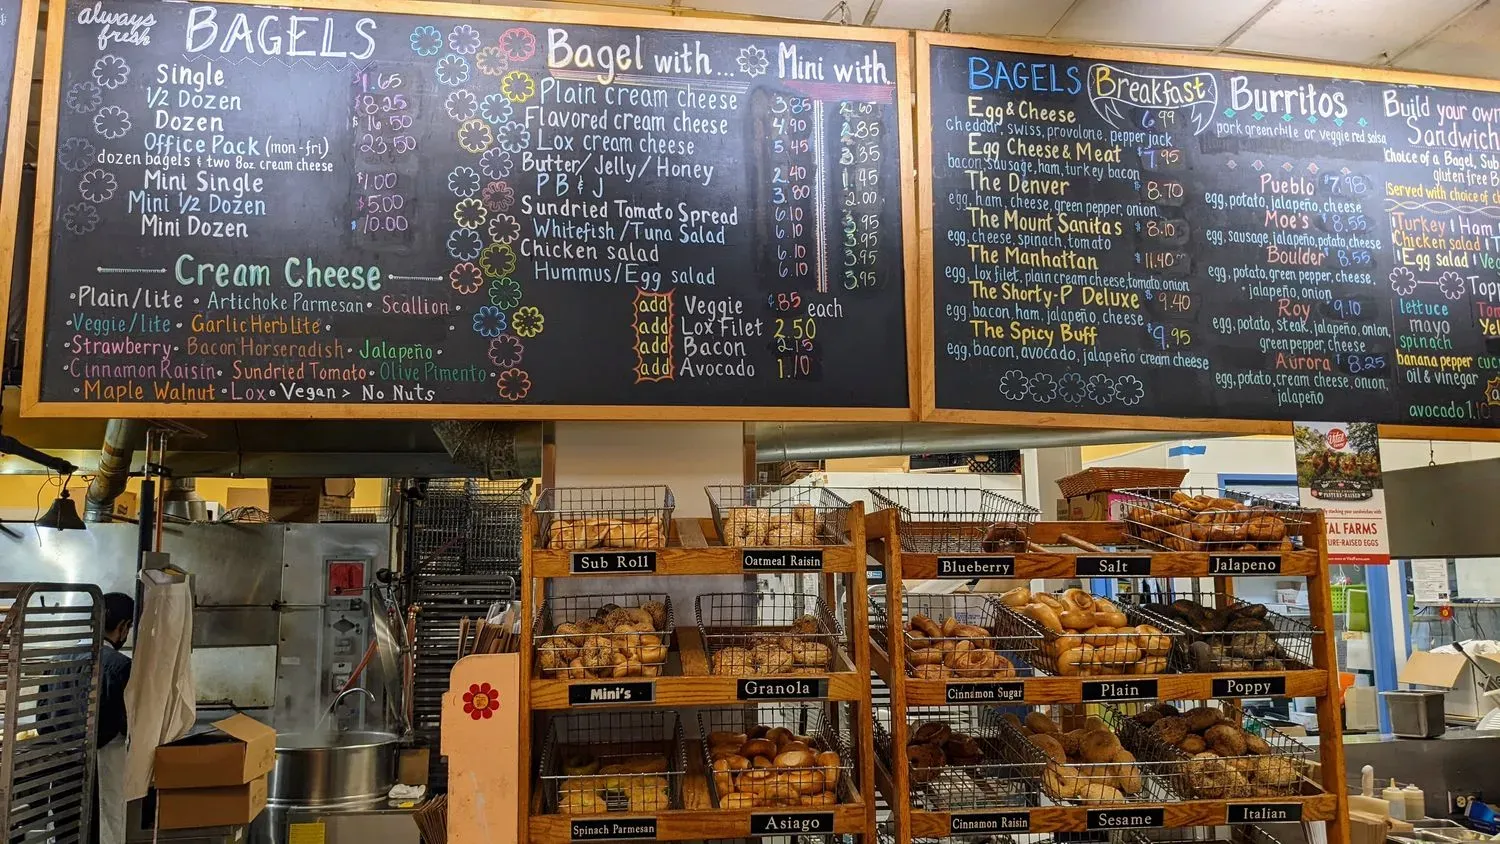 always fresh
BAGELS
Single $1.65
1/2 Dozen $8.25
Dozen $16.50
Office Pack (mon-fri) 23.50
dozen bagels & two 8oz cream cheese
Mini Single $1.00
Mini 1/2 Dozen $5.00
Mini Dozen $10.00
Cream Cheese
•Plain/lite • Artichoke Parmesan • Scallion •
•Veggie/lite • Garlic Herb Lite •
•Strawberry • Bacon Horseradish • Jalapeño •
•Cinnamon Raisin • Sundried Tomato • Olive Pimento •
•Maple Walnut • Lox • Vegan > No Nuts
Bagel with... Mini with..
Plain cream cheese 3.85 2.60
Flavored cream cheese 4.90 2.85
Lox cream cheese 5.45 3.35
Butter/Jelly/Honey 2.40 1.45
PB & J 3.80 2.00
Sundried Tomato Spread 6.10 3.95
Whitefish/Tuna Salad 6.10 3.95
Chicken salad 6.10 3.95
Hummus/Egg salad 6.10 3.95
add Veggie $.85 each
add Lox Filet 2.50
add Bacon
add Avocado 1.10
BAGELS Breakfast
Egg & Cheese 6.99
cheddar, swiss, provolone, pepper jack
Egg Cheese & Meat $7.95
bacon, sausage, ham, turkey bacon
The Denver 8.70
egg, ham, cheese, green pepper, onion
The Mount Sanitas $8.10
egg, cheese, spinach, tomato
The Manhattan 11.40
egg, lox filet, plain cream cheese, tomato, onion
The Shorty-P Deluxe $9.40
egg, bacon, ham, jalapeño, cheese
The Spicy Buff $9.95
egg, bacon, avocado, jalapeño cream cheese
Burritos
pork green chile or veggie red salsa
Pueblo $7.98
egg, potato, jalapeño, cheese
Moe's $8.55
egg, sausage, jalapeño, potato, cheese
Boulder 8.55
egg, potato, green pepper, cheese,
jalapeño, onion
Roy 9.10
egg, potato, steak, jalapeño, onion,
green pepper, cheese
Aurora $8.25
egg, potato, cream cheese, onion,
jalapeño
Build your own
Sandwich
Choice of a Bagel, Sub
gluten free
Served with choice of
Turkey | Ham
Chicken salad |
Egg salad |
lettuce
mayo
spinach
banana pepper
oil & vinegar
avocado 1.10
Vital
TAL FARMS
URE-RAISED EGGS
Sub Roll
Oatmeal Raisin
Blueberry
Salt
Jalapeno
Mini's
Granola
Cinnamon Sugar
Plain
Poppy
Spinach Parmesan
Asiago
Cinnamon Raisin
Sesame
Italian